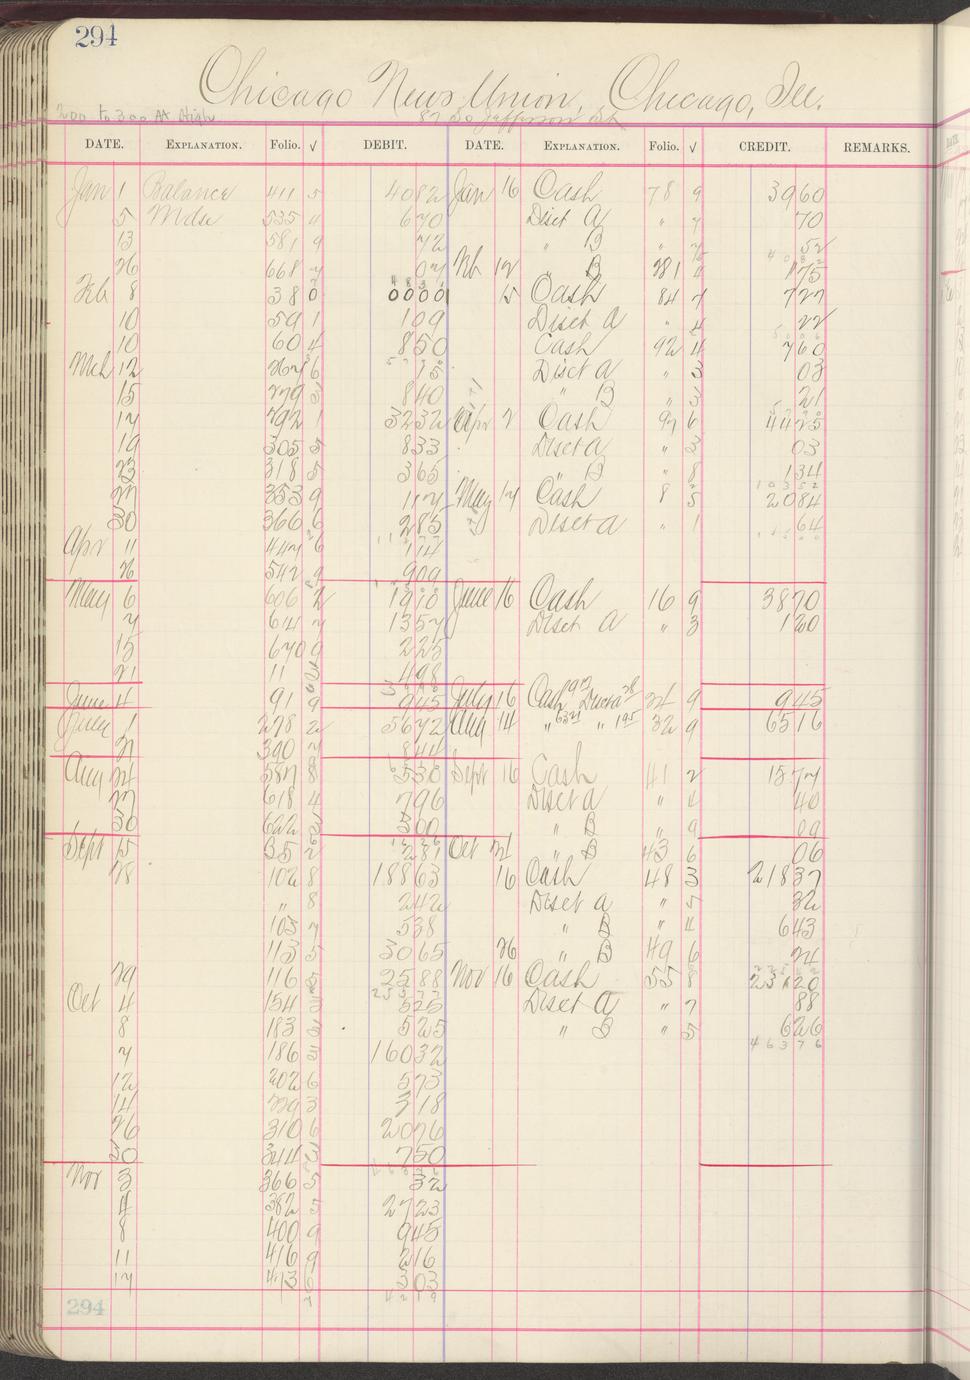 294
Chicago News Union, Chicago, Ill.
200 to 300 At High
87 So Jefferson St
DATE. EXPLANATION. Folio. √ DEBIT. DATE. EXPLANATION. Folio. √ CREDIT. REMARKS.
Jan 1 Balance 411 5 4082 Jan 16 Cash 78 9 3960
5 Mdse 535 4 670 Disct A " 7 70
13 581 9 72 " B " 52
26 668 7 07 Feb 12 " B 281 4 1175
Feb 8 38 0 0000 15 Cash 84 7 727
10 591 109 Disct A " 4 22
10 60 4 850 Cash 92 4 760
Mch 12 267 6 75 Disct A " 3 03
15 279 3 840 " B " 3 21
17 292 1 3232 Apr 2 Cash 97 6 4425
19 305 3 833 Disct A " 3 03
23 318 5 365 " B " 8 134
27 353 9 117 May 17 Cash 8 5 2084
30 366 6 285 Disct A " 1 64
Apr 11 447 6 114
26 542 9 909
May 6 606 2 1910 June 16 Cash 16 9 3870
7 614 7 1357 Disct A " 3 120
15 670 9 225
21 11 498
June 4 91 9 945 July 16 Cash 917 Discta 28 24 9 945
July 1 278 2 5672 Aug 14 " 6321 " 195 32 9 6516
21 390 7 844
Aug 24 587 8 530 Sept 16 Cash 41 2 1577
27 618 4 796 Disct A " 4 40
30 622 3 300 " B " 9 09
Sept 15 35 2 281 Oct 21 " B 43 6 06
28 102 8 18863 16 Cash 48 3 21837
" 8 242 Disct A " 5 32
103 7 538 " B " 4 643
113 5 3065 26 " B 49 6 24
29 116 5 2588 Nov 16 Cash 55 8 23620
Oct 4 154 3 525 Disct A " 7 88
8 183 3 525 " B " 5 626
4 6 3 7 6
7 186 3 16032
12 202 6 573
14 229 3 318
26 310 6 2076
30 344 3 750
Nov 3 366 5 32
4 382 5 2723
8 400 9 945
11 416 9 216
17 473 6 303
4 2 1 9
294